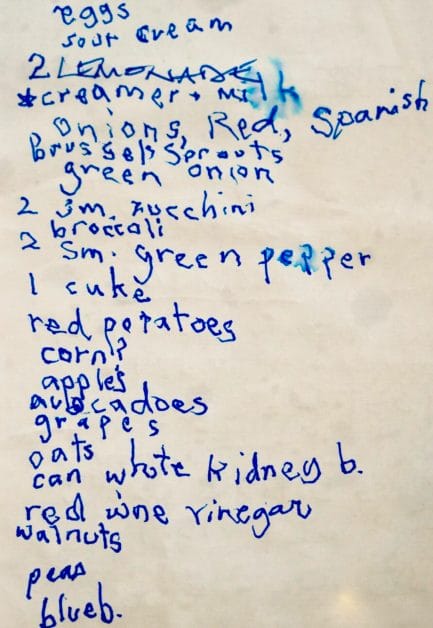 eggs
sour cream
2 LEMONADE
*creamer + Milk
Onions, Red, Spanish
Brussels Sprouts
green onion
2 sm. zucchini
broccoli
2 sm. green pepper
1 cuke
red potatoes
corn?
apples
avocadoes
grapes
oats
can white kidney b.
red wine vinegar
walnuts
peas
blueb.